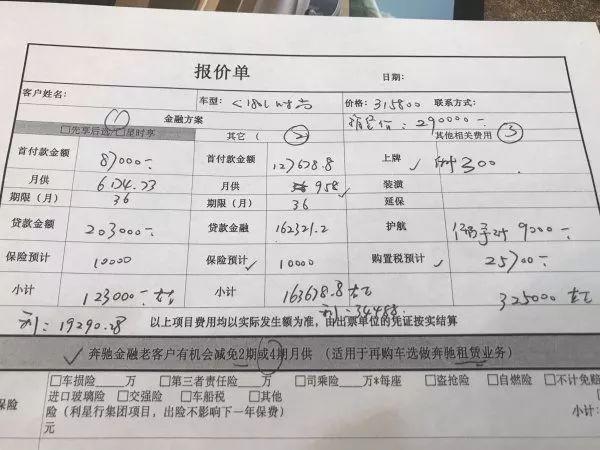 报价单 日期:
客户姓名: 车型: C180L 时尚 价格: 315800 联系方式:
① 金融方案 销售价: 290000
□先享后选 □星时享 其它 ( ② 其他相关费用 ③
首付款金额 87000 首付款金额 127678.8 上牌 ✓ 300
月供 6174.73 月供 958 ✓ 装潢
期限（月） 36 期限（月） 36 延保
贷款金额 203000 贷款金融 162321.2 护航 9000
保险预计 10000 保险预计 ✓ 10000 购置税预计 ✓ 25700
小计 123000 左右 小计 163678.8 左右 325000 左右
利: 19290.28 利: 34488
以上项目费用均以实际发生额为准，由出票单位的凭证按实结算
✓ 奔驰金融老客户有机会减免2期或4期月供（适用于再购车选做奔驰租赁业务）
□车损险 万 □第三者责任险 万 □司乘险 万*每座 □盗抢险 □自燃险 □不计免赔
保险 进口玻璃险 □交强险 □车船税 □其他
险（利星行集团项目，出险不影响下一年保费） 小计:
元